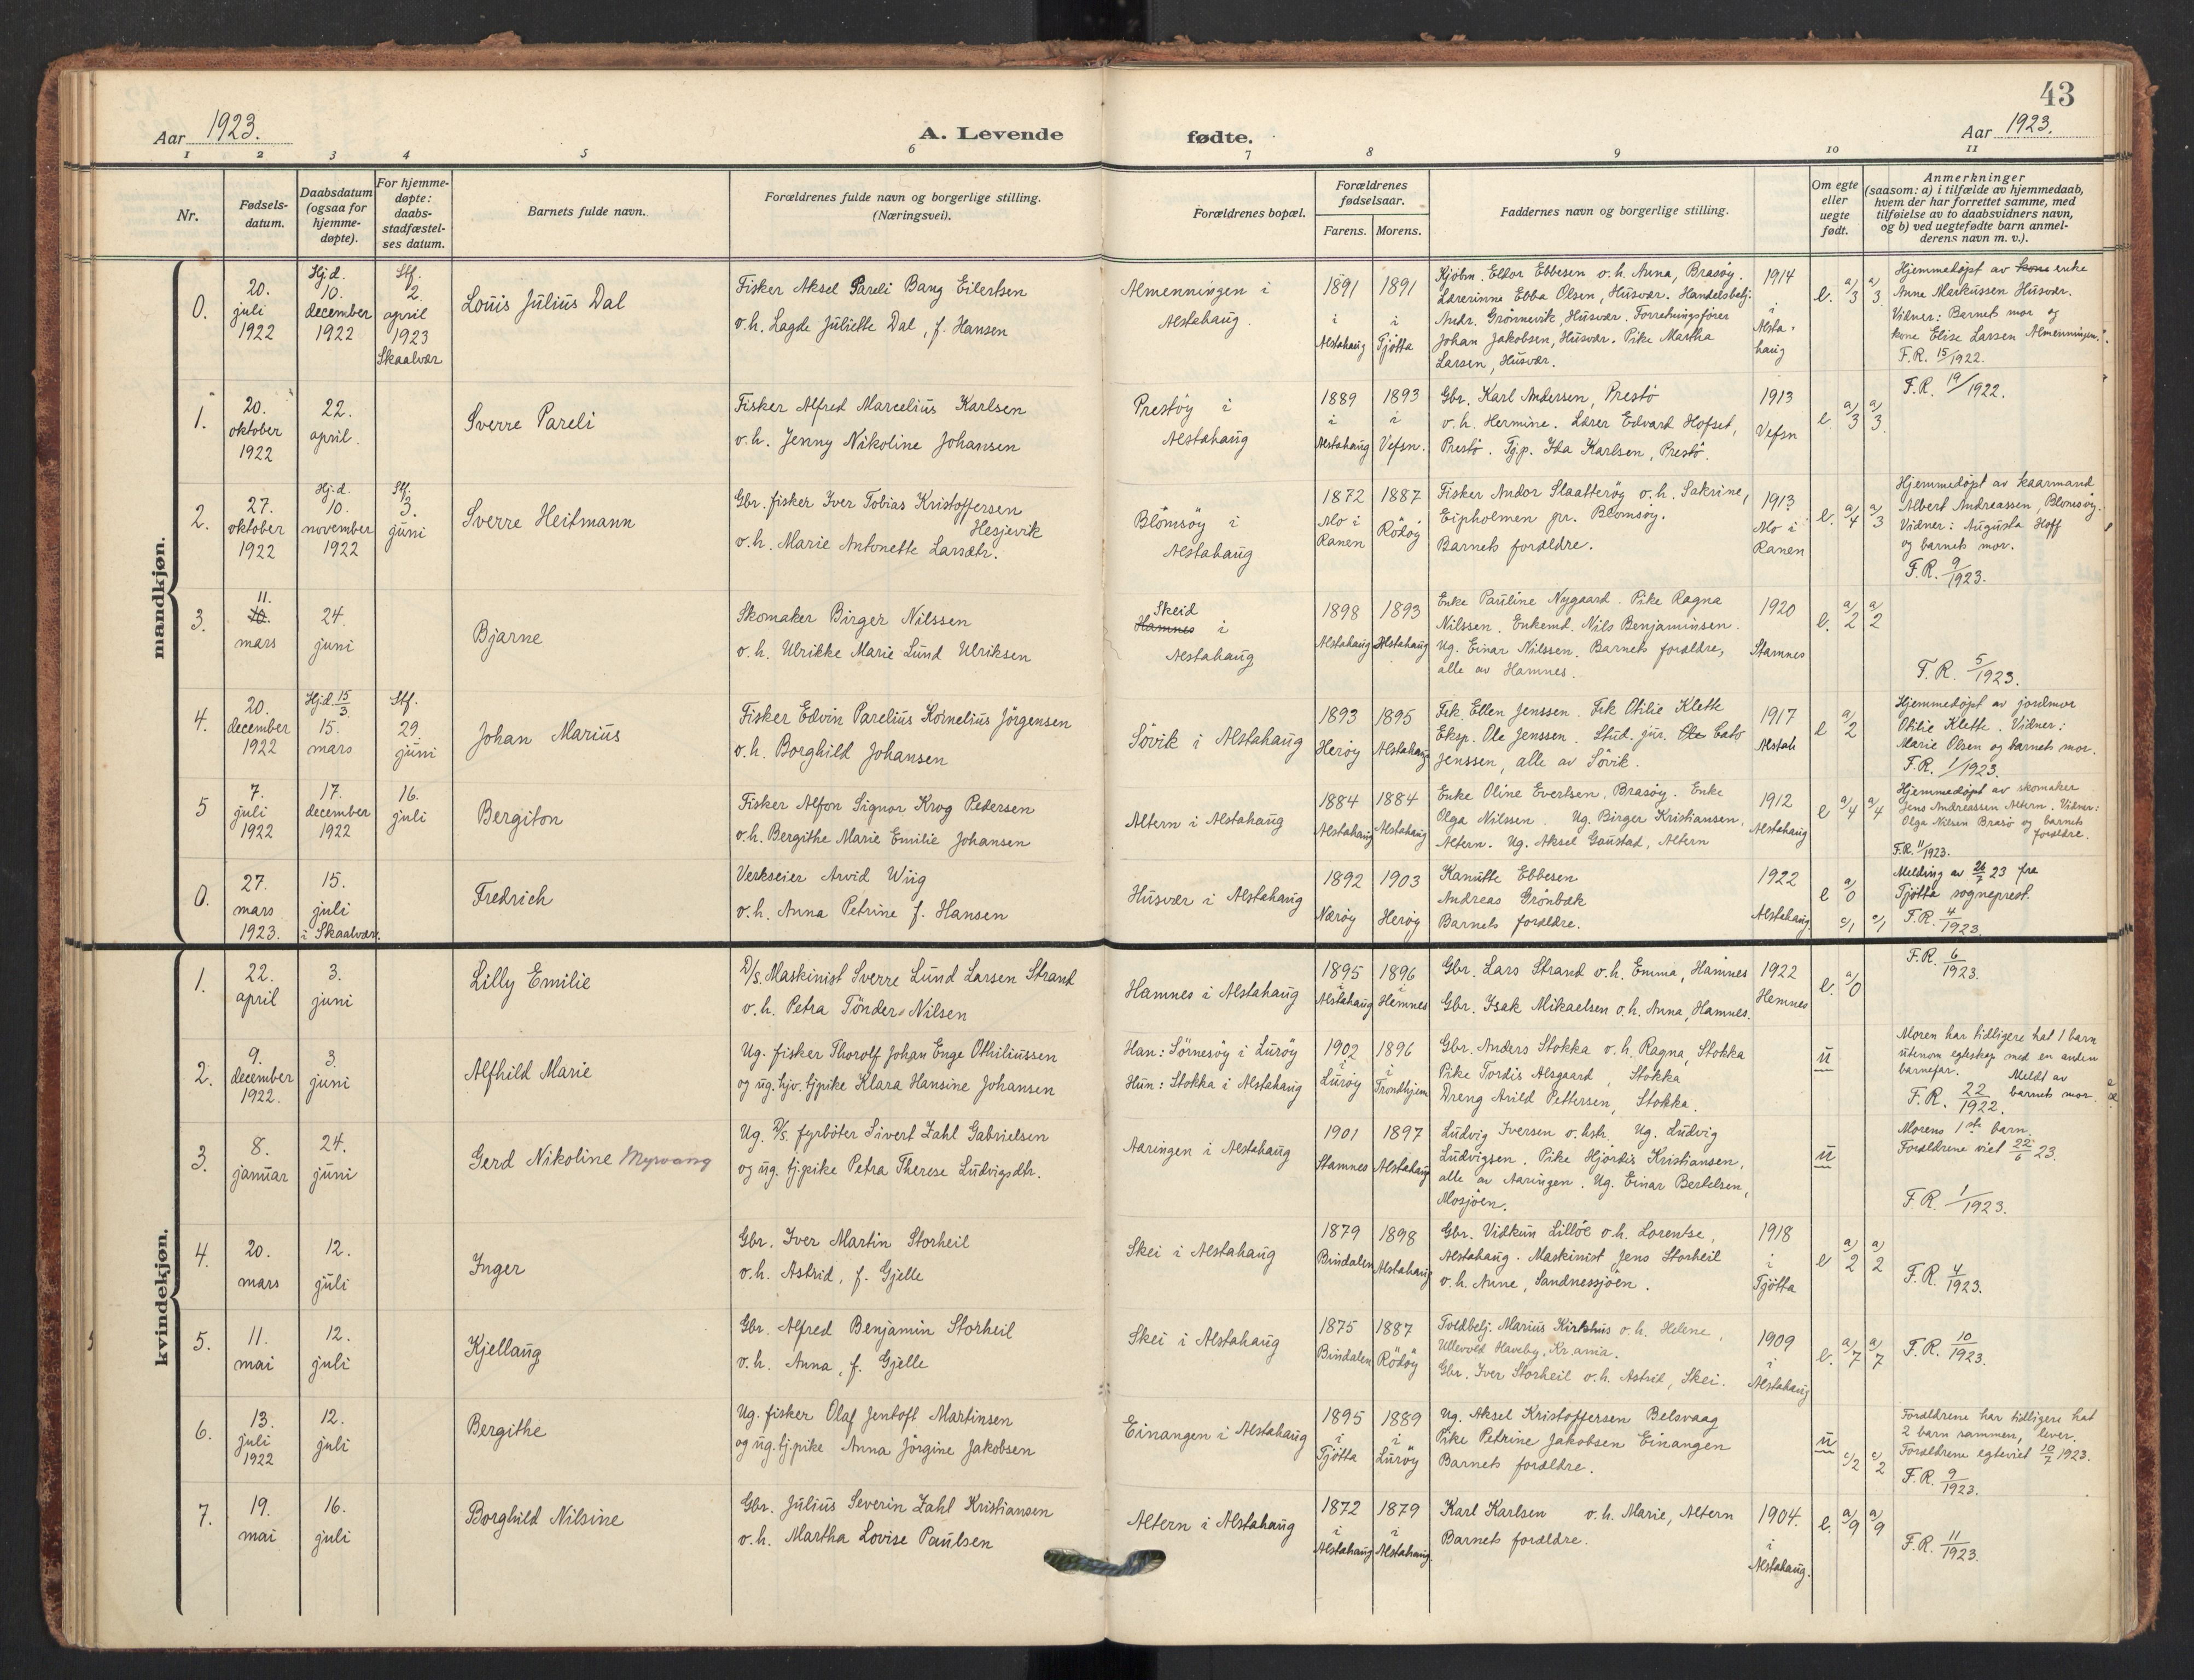 43
Aar 1923.
A. Levende fødte.
Aar 1923.
1 2 3 4 5 6 7 8 9 10 11
Nr.
Fødsels-
datum.
Daabsdatum
(ogsaa for
hjemme-
døpte).
For hjemme-
døpte:
daabs-
stadfæstel-
ses datum.
Barnets fulde navn.
Forældrenes fulde navn og borgerlige stilling.
(Næringsvei).
Forældrenes bopæl.
Forældrenes
fødselsaar.
Farens. Morens.
Faddernes navn og borgerlige stilling.
Om egte
eller
uegte
født.
Anmerkninger
(saasom: a) i tilfælde av hjemmedaab,
hvem der har forrettet samme, med
tilføielse av to daabsvidners navn,
og b) ved uegtefødte barn anmel-
derens navn m. v.).
mandkjøn.
0.
20.
juli
1922
Hj.d.
10.
december
1922
Stf.
2.
april
1923
Skaalvær
Louis Julius Dal
Fisker Aksel Pareli Bang Eilertsen
o.h. Lagde Juliette Dal, f. Hansen
Almenningen i
Alstahaug.
1891
i
Alstahaug
1891
i
Tjøtta
Kjøbm. Eldor Ebbesen o.h. Anna, Brasøy.
Lærerinne Ebba Olsen, Husvær. Handelsbetj.
Andr. Grønnevik, Husvær. Forretningsfører
Johan Jakobsen, Husvær. Pike Martha
Larsen, Husvær.
1914
i
Alsta-
haug
e. a/3 a/3.
Hjemmedøpt av kone enke
Anne Markussen Husvær.
Vidner: Barnets mor og
kone Elise Larsen Almenningen.
F.R. 15/1922.
1.
20.
oktober
1922
22.
april.
Sverre Pareli
Fisker Alfred Marcelius Karlsen
o.h. Jenny Nikoline Johansen
Prestøy i
Alstahaug
1889
i
Alstahaug
1893
i
Vefsn.
Gbr. Karl Andersen, Prestø
o.h. Hermine. Lærer Edvart Hofset,
Prestø. Tj.p. Ida Karlsen, Prestø.
1913
Vefsn
e. a/3 a/3.
F.R. 19/1922.
2.
27.
oktober
1922
Hj.d.
10.
november
1922
Stf.
3.
juni
Sverre Heitmann
Gbr. fisker Iver Tobias Kristoffersen
Hesjevik
o.h. Marie Antonette Larsdtr.
Blomsøy i
Alstahaug
1872
Mo i
Ranen
1887
Rødøy
Fisker Andor Slaatterøy o.h. Sakrine,
Eipholmen pr. Blomsøy.
Barnets forældre.
1913
Mo i
Ranen
e. a/4 a/3
Hjemmedøpt av kaarmand
Albert Andreassen, Blomsøy.
Vidner: Augusta Hoff
og barnets mor.
F.R. 9/1923.
3.
11.
10.
mars
24.
juni
Bjarne
Skomaker Birger Nilssen
o.h. Ulrikke Marie Lund Ulriksen
Skeid
Hamnes i
Alstahaug
1898
Alstahaug
1893
Alstahaug
Enke Pauline Nygaard. Pike Ragna
Nilssen. Enkemd. Nils Benjaminsen.
Ug. Einar Nilssen. Barnets forældre,
alle av Hamnes.
1920
Stamnes
e. a/2 a/2
F.R. 5/1923.
4.
20.
december
1922
Hj.d. 15/3
15.
mars
Stf.
29.
juni
Johan Marius
Fisker Edvin Parelius Kornelius Jørgensen
o.h. Borghild Johansen
Søvik i Alstahaug
1893
Herøy
1895
Alstahaug
Frk. Ellen Jenssen. Frk Otilie Klette
Eksp. Ole Jenssen. Stud. jur. Ole Cato
Jenssen, alle av Søvik.
1917
Alstah
e a/2
Hjemmedøpt av jordmor
Otilie Klette. Vidner:
Marie Olsen og barnets mor.
F.R. 1/1923.
5
7.
juli
1922
17.
december
1922
16.
juli
Bergiton
Fisker Alfon Signor Krog Pedersen
o.h. Bergithe Marie Emilie Johansen
Altern i Alstahaug
1884
Alstahaug
1884
Alstahaug
Enke Oline Evertsen, Brasøy. Enke
Olga Nilssen. Ug. Birger Kristiansen,
Altern. Ug. Aksel Gaustad, Altern
1912
Alstahaug
e a/4 a/4
Hjemmedøpt av skomaker
Jens Andreassen Altern. Vidner:
Olga Nilsen Brasø og barnets
forældre.
F.R. 11/1923.
0.
27.
mars
1923.
15.
juli
i Skaalvær.
Fredrich
Verkseier Arvid Wiig
o.h. Anna Petrine f. Hansen
Husvær i Alstahaug
1892
Nærøy
1903
Herøy
Kanutte Ebbesen
Andreas Grønbæk
Barnets forældre.
1922
Alstahaug
e a/0
c/1 c/1
Melding av 26/7 23 fra
Tjøtta sogneprest.
F.R. 4/1923.
kvindekjøn.
1.
22.
april
3.
juni
Lilly Emilie
D/S. Maskinist Sverre Lund Larsen Strand
o.h. Petra Tønder-Nilsen
Hamnes i Alstahaug
1895
i
Alstahaug
1896
i
Hemnes
Gbr. Lars Strand o.h. Emma, Hamnes
Gbr. Isak Mikaelsen o.h. Anna, Hamnes.
1922
Hemnes
e. a/0
F.R. 6/1923.
2.
9.
december
1922.
3.
juni
Alfhild Marie
Ug. fisker Thorolf Johan Enge Othiliussen
og ug. hjv. tjpike Klara Hansine Johansen
Han: Sørnesøy i Lurøy
Hun: Stokka i Alstahaug
1902
i
Lurøy
1896
i
Trondhjem
Gbr. Anders Stokka o.h. Ragna, Stokka
Pike Tordis Alsgaard, Stokka
Dreng Arild Pettersen, Stokka.
u
Moren har tidligere hat 1 barn
utenom egteskap med en anden
barnefar. Meldt av
barnets mor.
F.R. 22/1922.
3.
8.
januar
24.
juni
Gerd Nikoline Myrvang
Ug. D/S. fyrbøter Sivert Zahl Gabrielsen
og ug. tj.pike Petra Therese Ludvigsdtr.
Aaringen i Alstahaug
1901
Stamnes
1897
Alstahaug
Ludvig Iversen o. hstr. Ug. Ludvig
Ludvigsen. Pike Hjørdis Kristiansen,
alle av Aaringen. Ug. Einar Bertelsen,
Mosjøen.
u
Morens 1ste barn.
Forældrene viet 22/6 23.
F.R. 1/1923.
4.
20.
mars
12.
juli
Inger
Gbr. Iver Martin Storheil
o.h. Astrid, f. Gjelle
Skei i Alstahaug
1879
Bindalen
1898
Alstahaug
Gbr. Vidkun Lilløe o.h. Lorentse,
Alstahaug. Maskinist Jens Storheil
o.h. Anne, Sandnessjøen.
1918
i
Tjøtta
e a/2 a/2
F.R. 4/1923.
5.
11.
mai
12.
juli
Kjellaug
Gbr. Alfred Benjamin Storheil
o.h. Anna, f. Gjelle
Skei i Alstahaug
1875
Bindalen
1887
Rødøy
Toldbetj. Marius Kirkhus o.h. Helene,
Ullevold Haveby, Kr.ania.
Gbr. Iver Storheil o.h. Astrid, Skei.
1909
i
Alstahaug
e. a/7 a/7
F.R. 10/1923.
6.
13.
juli
1922
12.
juli
Bergithe
Ug. fisker Olaf Jentoft Martinsen
og ug. tj.pike Anna Jørgine Jakobsen
Einangen i Alstahaug
1895
i
Tjøtta
1889
i
Lurøy
Ug. Aksel Kristoffersen Belsvaag
Pike Petrine Jakobsen Einangen
Barnets forældre.
u
c/2 c/2
Forældrene har tidligere hat
2 barn sammen, lever.
Forældrene egteviet 10/7 1923.
F.R. 9/1923.
7.
19.
mai
16.
juli
Borghild Nilsine
Gbr. Julius Severin Zahl Kristiansen
o.h. Martha Lovise Paulsen
Altern i Alstahaug
1872
i
Alstahaug
1879
i
Alstahaug
Karl Karlsen o.h. Marie, Altern
Barnets forældre.
1904.
i
Alstahaug.
e. a/9 a/9
F.R. 11/1923.